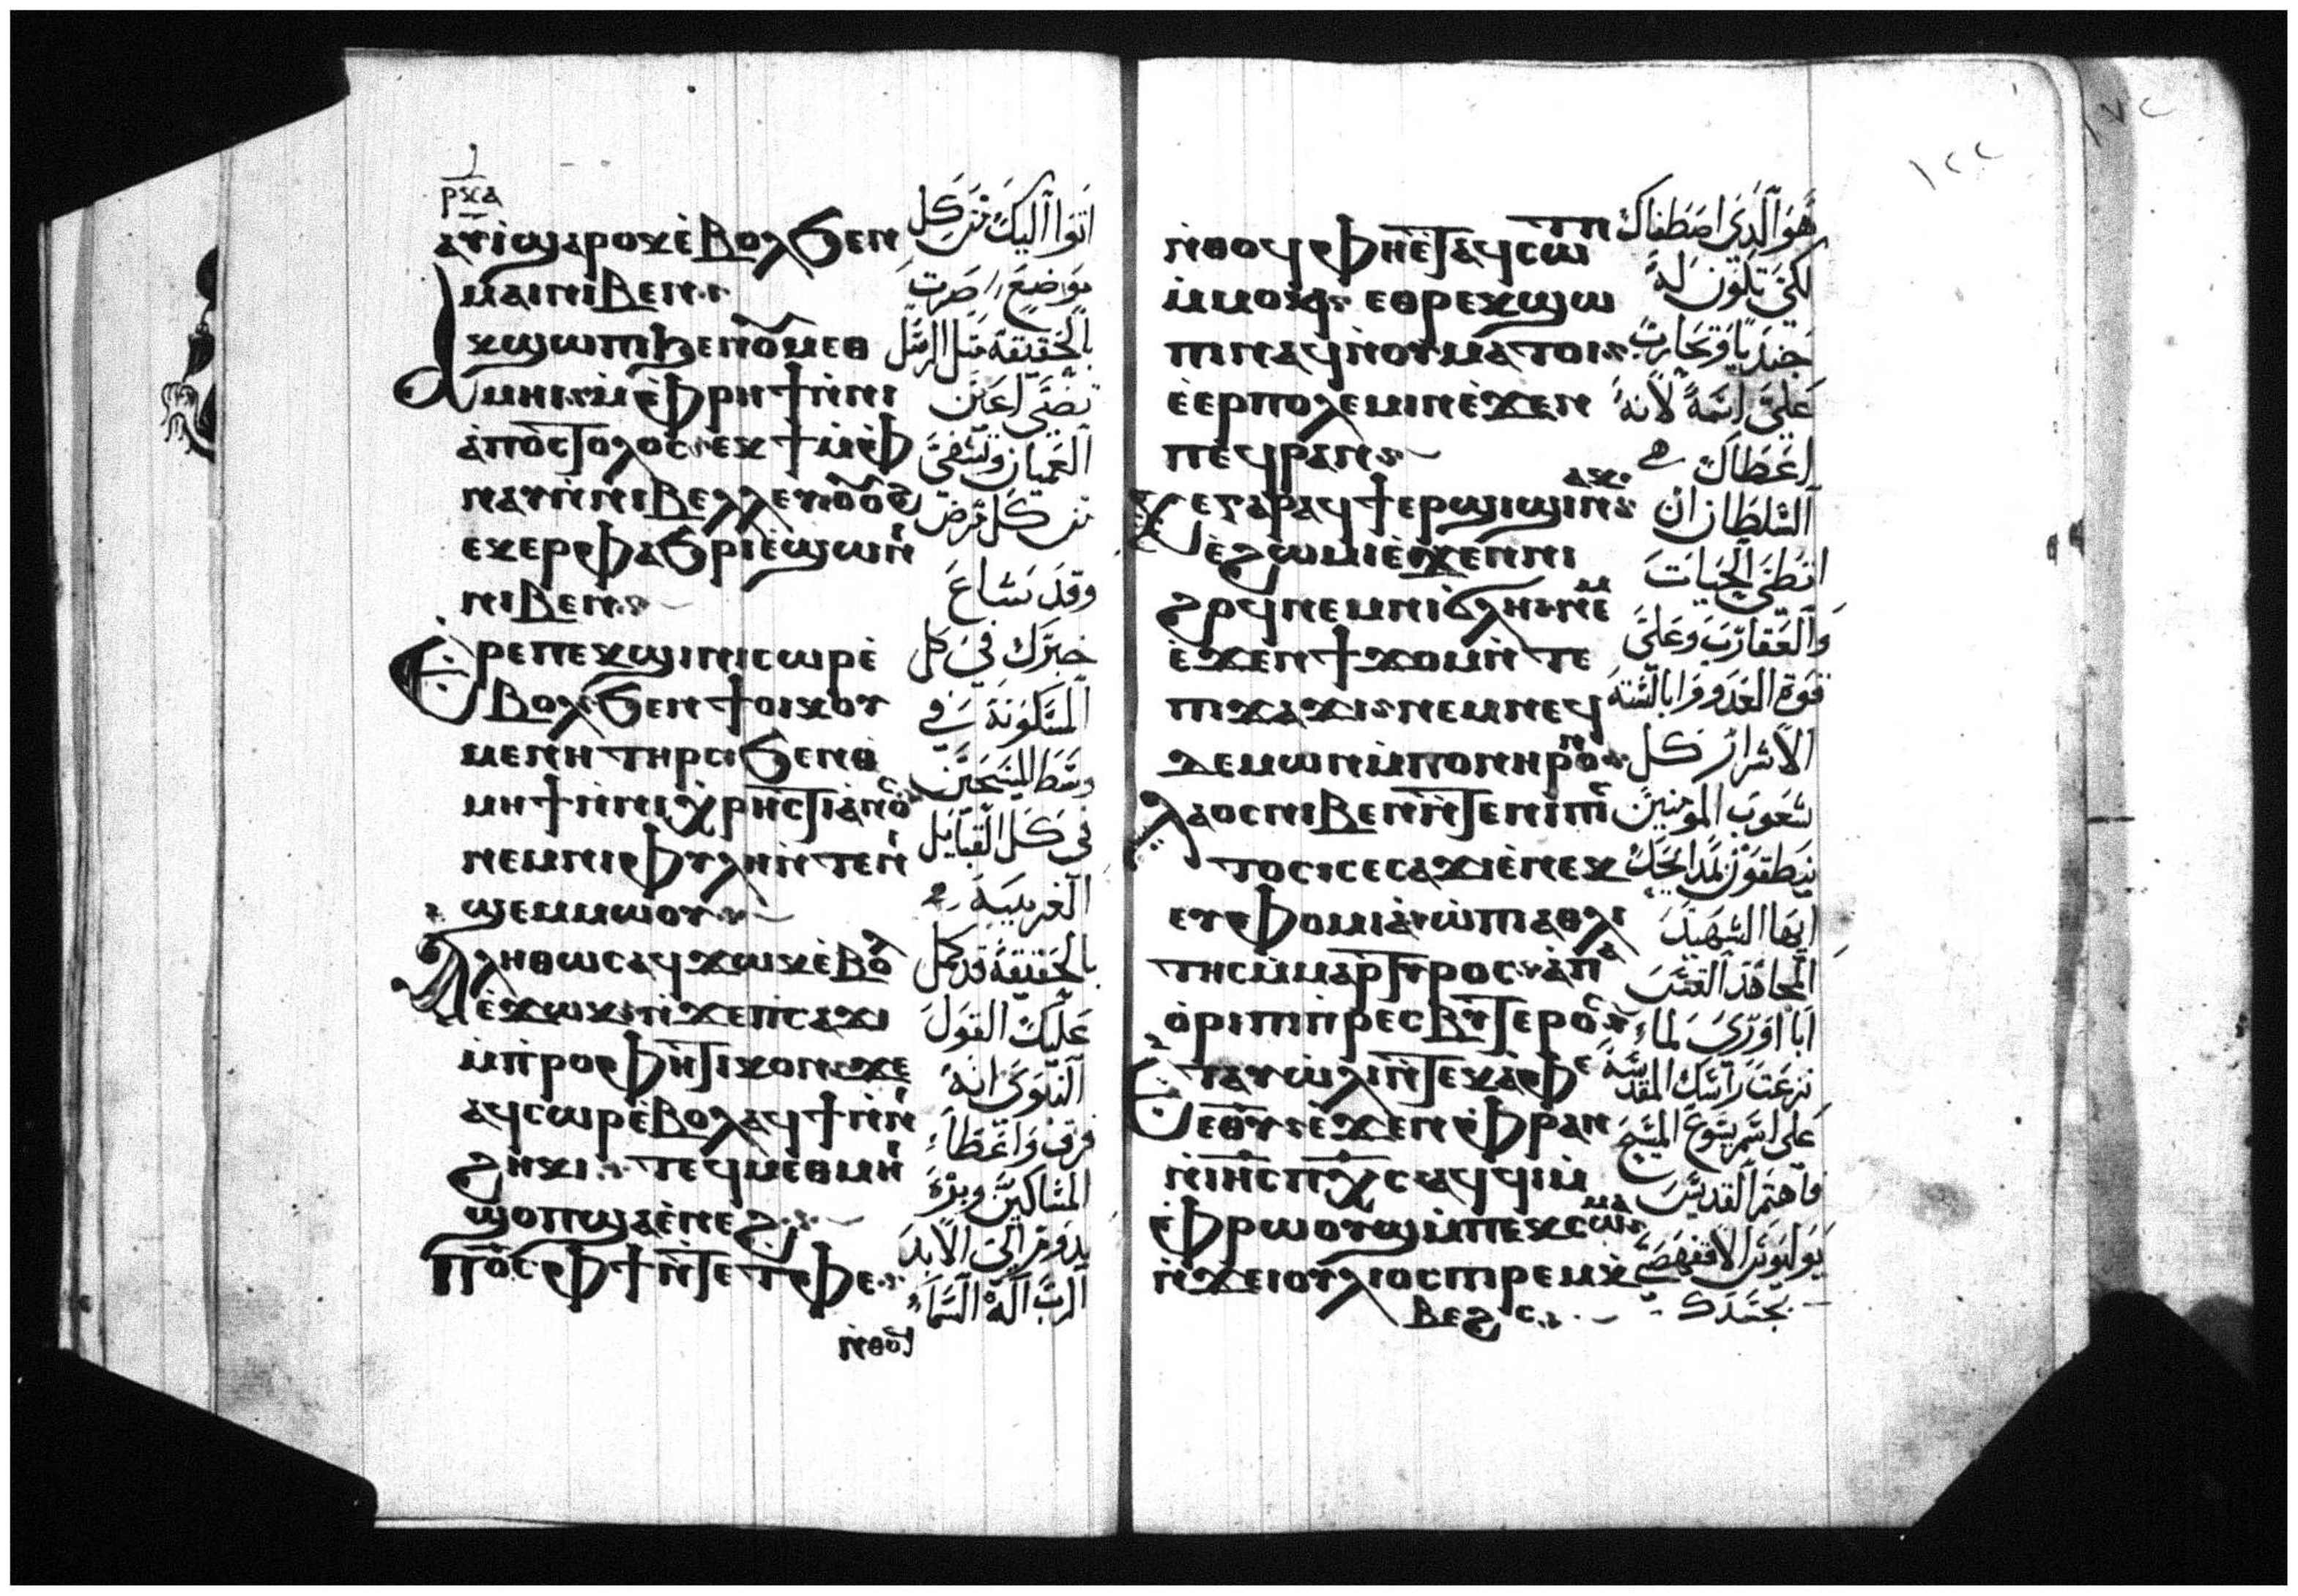 ⲣⲕⲁ
ⲁⲩⲓ̀ϣⲁⲣⲟⲕⲉ̀ⲃⲟⲗϧⲉⲛ
ⲙⲁⲓⲛⲓⲃⲉⲛ
ⲁⲕϣⲱⲡⲓϧⲉⲛⲟⲩⲙⲉⲑ
ⲙⲏⲓⲙ̀ⲫⲣⲏϯⲛ̀ⲛⲓ
ⲁ̀ⲡⲟⲥⲧⲟⲗⲟⲥⲉⲕϯⲙ̀ⲫ
ⲛⲁⲩⲛ̀ⲛⲓⲃⲉⲗⲗⲉⲩⲟⲟⲥ
ⲉⲕⲉⲣⲫⲁϧⲣⲓⲉ̀ϣⲱⲛⲓ
ⲛⲓⲃⲉⲛ
ⲉⲣⲉⲡⲉⲕϣⲓⲛⲓⲥⲱⲣⲉ̀
ⲃⲟⲗϧⲉⲛϯⲟⲓⲕⲟⲩ
ⲙⲉⲛⲏⲧⲏⲣⲥϧⲉⲛⲑ
ⲙⲏϯⲛ̀ⲛⲓⲭⲣⲏⲥⲧⲓⲁⲛⲟⲥ
ⲛⲉⲙⲛⲓⲫⲩⲗⲏⲛ̀ⲧⲉⲛⲓ
ϣⲉⲙⲙⲱⲟⲩ
ⲁⲗⲏⲑⲱⲥⲁϥϫⲱⲕⲉ̀ⲃⲟⲗ
ⲉ̀ϫⲱⲕⲛ̀ϫⲉⲡⲓⲥⲁϫⲓ
ⲙ̀ⲡⲣⲟⲫⲏⲧⲓⲕⲟⲛϫⲉ
ⲁϥⲥⲱⲣⲉ̀ⲃⲟⲗⲁϥϯⲛ̀ⲛⲓ
ϩⲏⲕⲓⲧⲉϥⲙⲉⲑⲙⲏⲓ
ϣⲟⲡϣⲁⲉ̀ⲛⲉϩ
ⲡⲟ̅ⲥ̅ⲫϯⲛ̀ⲧⲉⲧⲫⲉ
ⲛ̀ⲑⲟϥ
اتوا اليك من كل
موضع صرت
بالحقيقة مثل الرسل
تضي اعين
العميان وتشفي
من كل مرض
وقد شاع
خبرك في كل
المسكونة في
وسط المسيحيين
في كل القبايل
الغريبة
بالحقيقة قد كمل
عليك القول
النبوي انه
فرق واعطاء
المساكين وبره
يدوم الى الابد
الرب اله السماء
ⲛ̀ⲑⲟϥⲫⲏⲉ̀ⲧⲁϥⲥⲱⲧⲡ
ⲙ̀ⲙⲟⲕ ⲉⲑⲣⲉⲕϣⲱ
ⲡⲓⲛⲁϥⲛ̀ⲟⲩⲙⲁⲧⲟⲓ
ⲉ̀ⲉⲣⲡⲟⲗⲉⲙⲓⲛⲉ̀ϫⲉⲛ
ⲡⲉϥⲣⲁⲛ
ϫⲉⲅⲁⲣⲁϥϯⲉⲣϣⲓϣⲓⲛⲁⲕ
ⲉ̀ϩⲱⲙⲓⲉ̀ϫⲉⲛⲛⲓ
ϩⲟϥⲛⲉⲙⲛⲓϭⲗⲏⲛⲉⲙ
ⲉ̀ϫⲉⲛϯϫⲟⲙⲛ̀ⲧⲉ
ⲡϫⲁϫⲓⲛⲉⲙⲛⲉϥ
ⲇⲉⲙⲱⲛⲙ̀ⲡⲟⲛⲏⲣⲟⲛ
ⲗⲁⲟⲥⲛⲓⲃⲉⲛⲛ̀ⲧⲉⲛⲓⲡⲓⲥ
ⲧⲟⲥⲥⲉⲥⲁϫⲓⲉ̀ⲛⲉⲕ
ⲉⲩⲫⲟⲙⲓⲁⲱ̀ⲡⲓⲁⲑⲗⲓ
ⲧⲏⲥⲙ̀ⲙⲁⲣⲧⲩⲣⲟⲥⲁⲡⲁ
ⲟ̀ⲣⲓⲡⲓⲡⲣⲉⲥⲃⲩⲧⲉⲣⲟⲥ
ⲉⲧⲁⲩⲱ̀ⲗⲓⲛ̀ⲧⲉⲕⲁ̀ⲫⲉ
ⲉⲑⲩⲉ̀ϫⲉⲛⲫⲣⲁⲛ
ⲛ̀ⲓⲏ̅ⲥ̅ⲡⲭ̅ⲥ̅ⲁϥϥⲓⲙ̀
ⲫⲣⲱⲟⲩϣⲙ̀ⲡⲉⲕⲥⲱⲙⲁ
ⲛ̀ϫⲉⲓⲟⲩⲗⲓⲟⲥⲡⲓⲣⲉⲙⲭ
ⲃⲉϩⲥ
هو الذي اصطفاك
لكي تكون له
جنديا وتحارب
على اسمه لانه
اعطاك
السلطان ان
تطى الحيات
والعقارب وعلى
قوة العدو وابالسته
الاشرار كل
شعوب المومنين
ينطقون بمدايحك
ايها الشهيد
المجاهد القس
ابا اوري لما
نزعت راسك المقدسة
على اسم يسوع المسيح
فاهتم القديس
يوليوس الاقفهصي
بجسدك
١٢٢